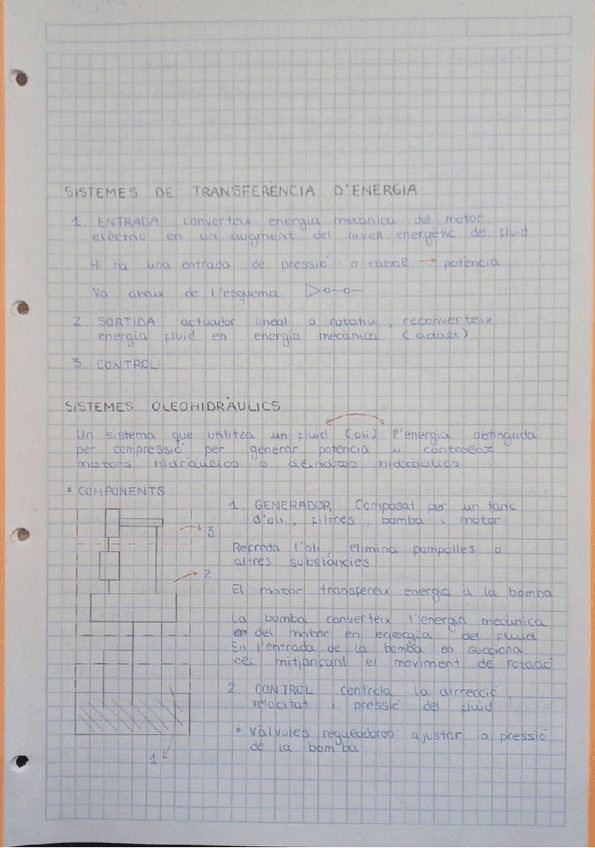 SISTEMES DE TRANSFERÈNCIA D'ENERGIA
1. ENTRADA: converteix energia mecànica del motor
elèctric en un augment del nivell energètic del fluid
Hi ha una entrada de pressió o cabal → potència
Va abaix de l'esquema
2. SORTIDA: actuador lineal o rotatiu, reconverteix
energia fluid en energia mecànica (adalt)
3. CONTROL
SISTEMES OLEOHIDRÀULICS
Un sistema que utilitza un fluid (oli) l'energia obtinguda
per compressió per generar potència i controlar
motors hidràulics o cilindres hidràulics
• COMPONENTS
1. GENERADOR. Composat per un tanc
d'oli, filtres, bomba i motor
Recreda l'oli, elimina pompolles o
altres substàncies
El motor transfereix energia a la bomba
La bomba converteix l'energia mecànica
en del motor en energia del fluid
En l'entrada de la bomba es succiona
mitjançant el moviment de rotació
2. CONTROL controla la dirrecció,
velocitat i pressió del fluid
• Vàlvules regueadores: ajustar la pressió
de la bomba
3
2
1